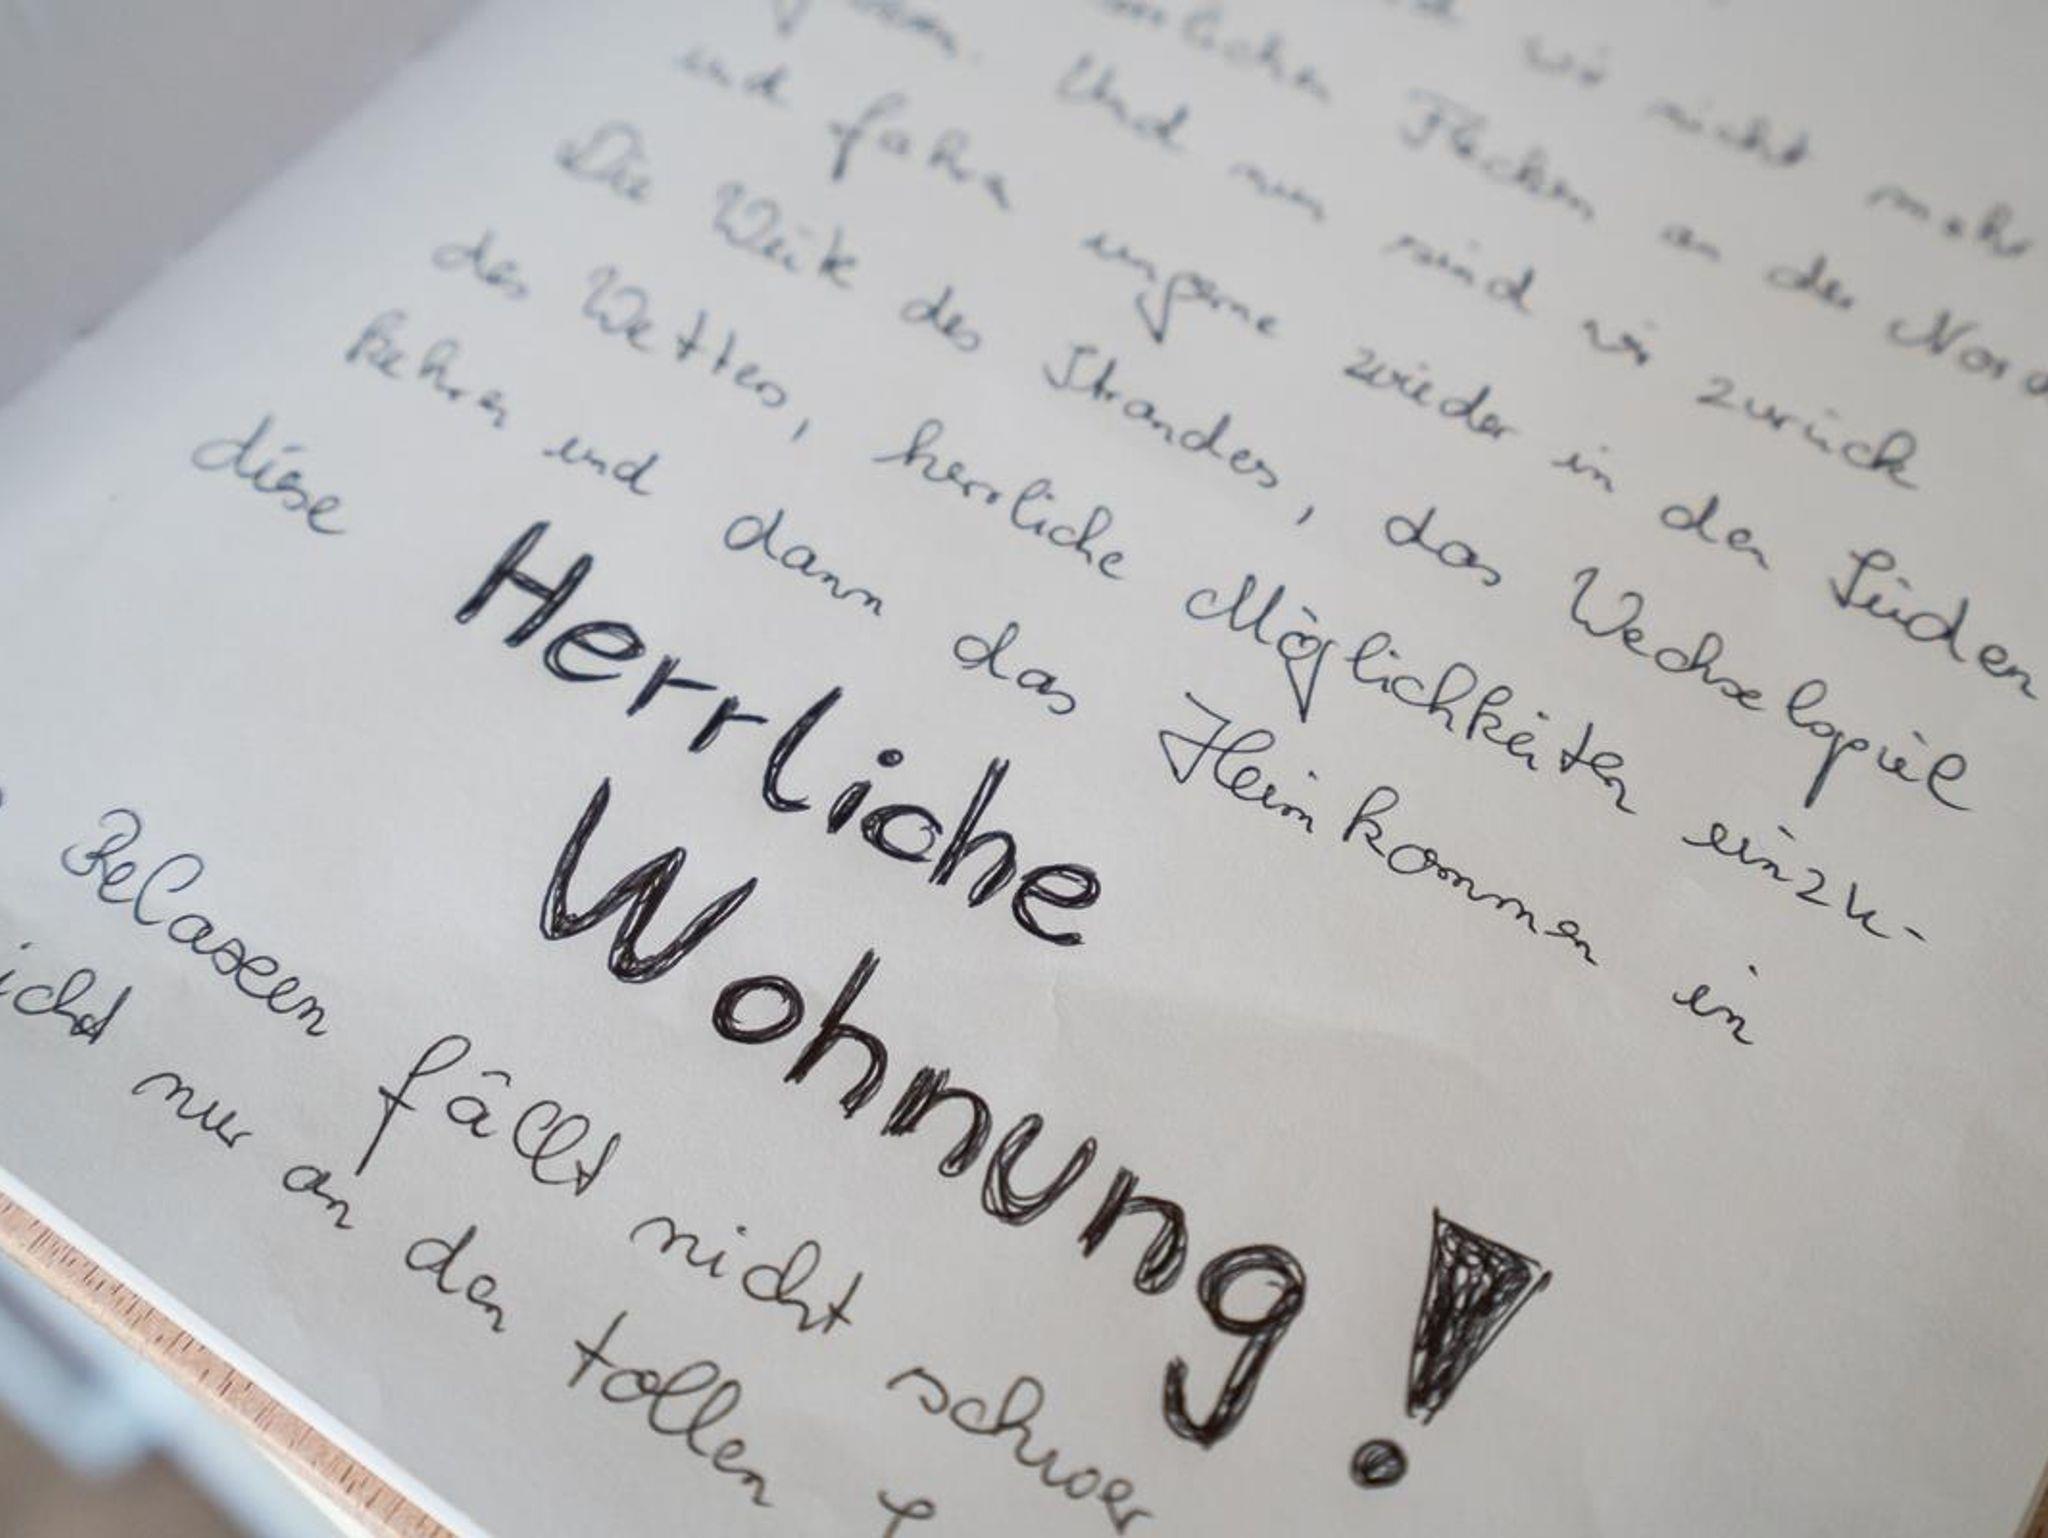 wir nicht mehr
Flecken an der Nord
Und nun sind wir zurück
und fahrn ungerne wieder in den Süden
Die Weite des Strandes, das Wechselspiel
des Wetters, herrliche Möglichkeiten einzu-
kehren und dann das Heimkommen in
diese
Herrliche
Wohnung!
Relaxen fällt nicht schwer
icht nur an den tollen